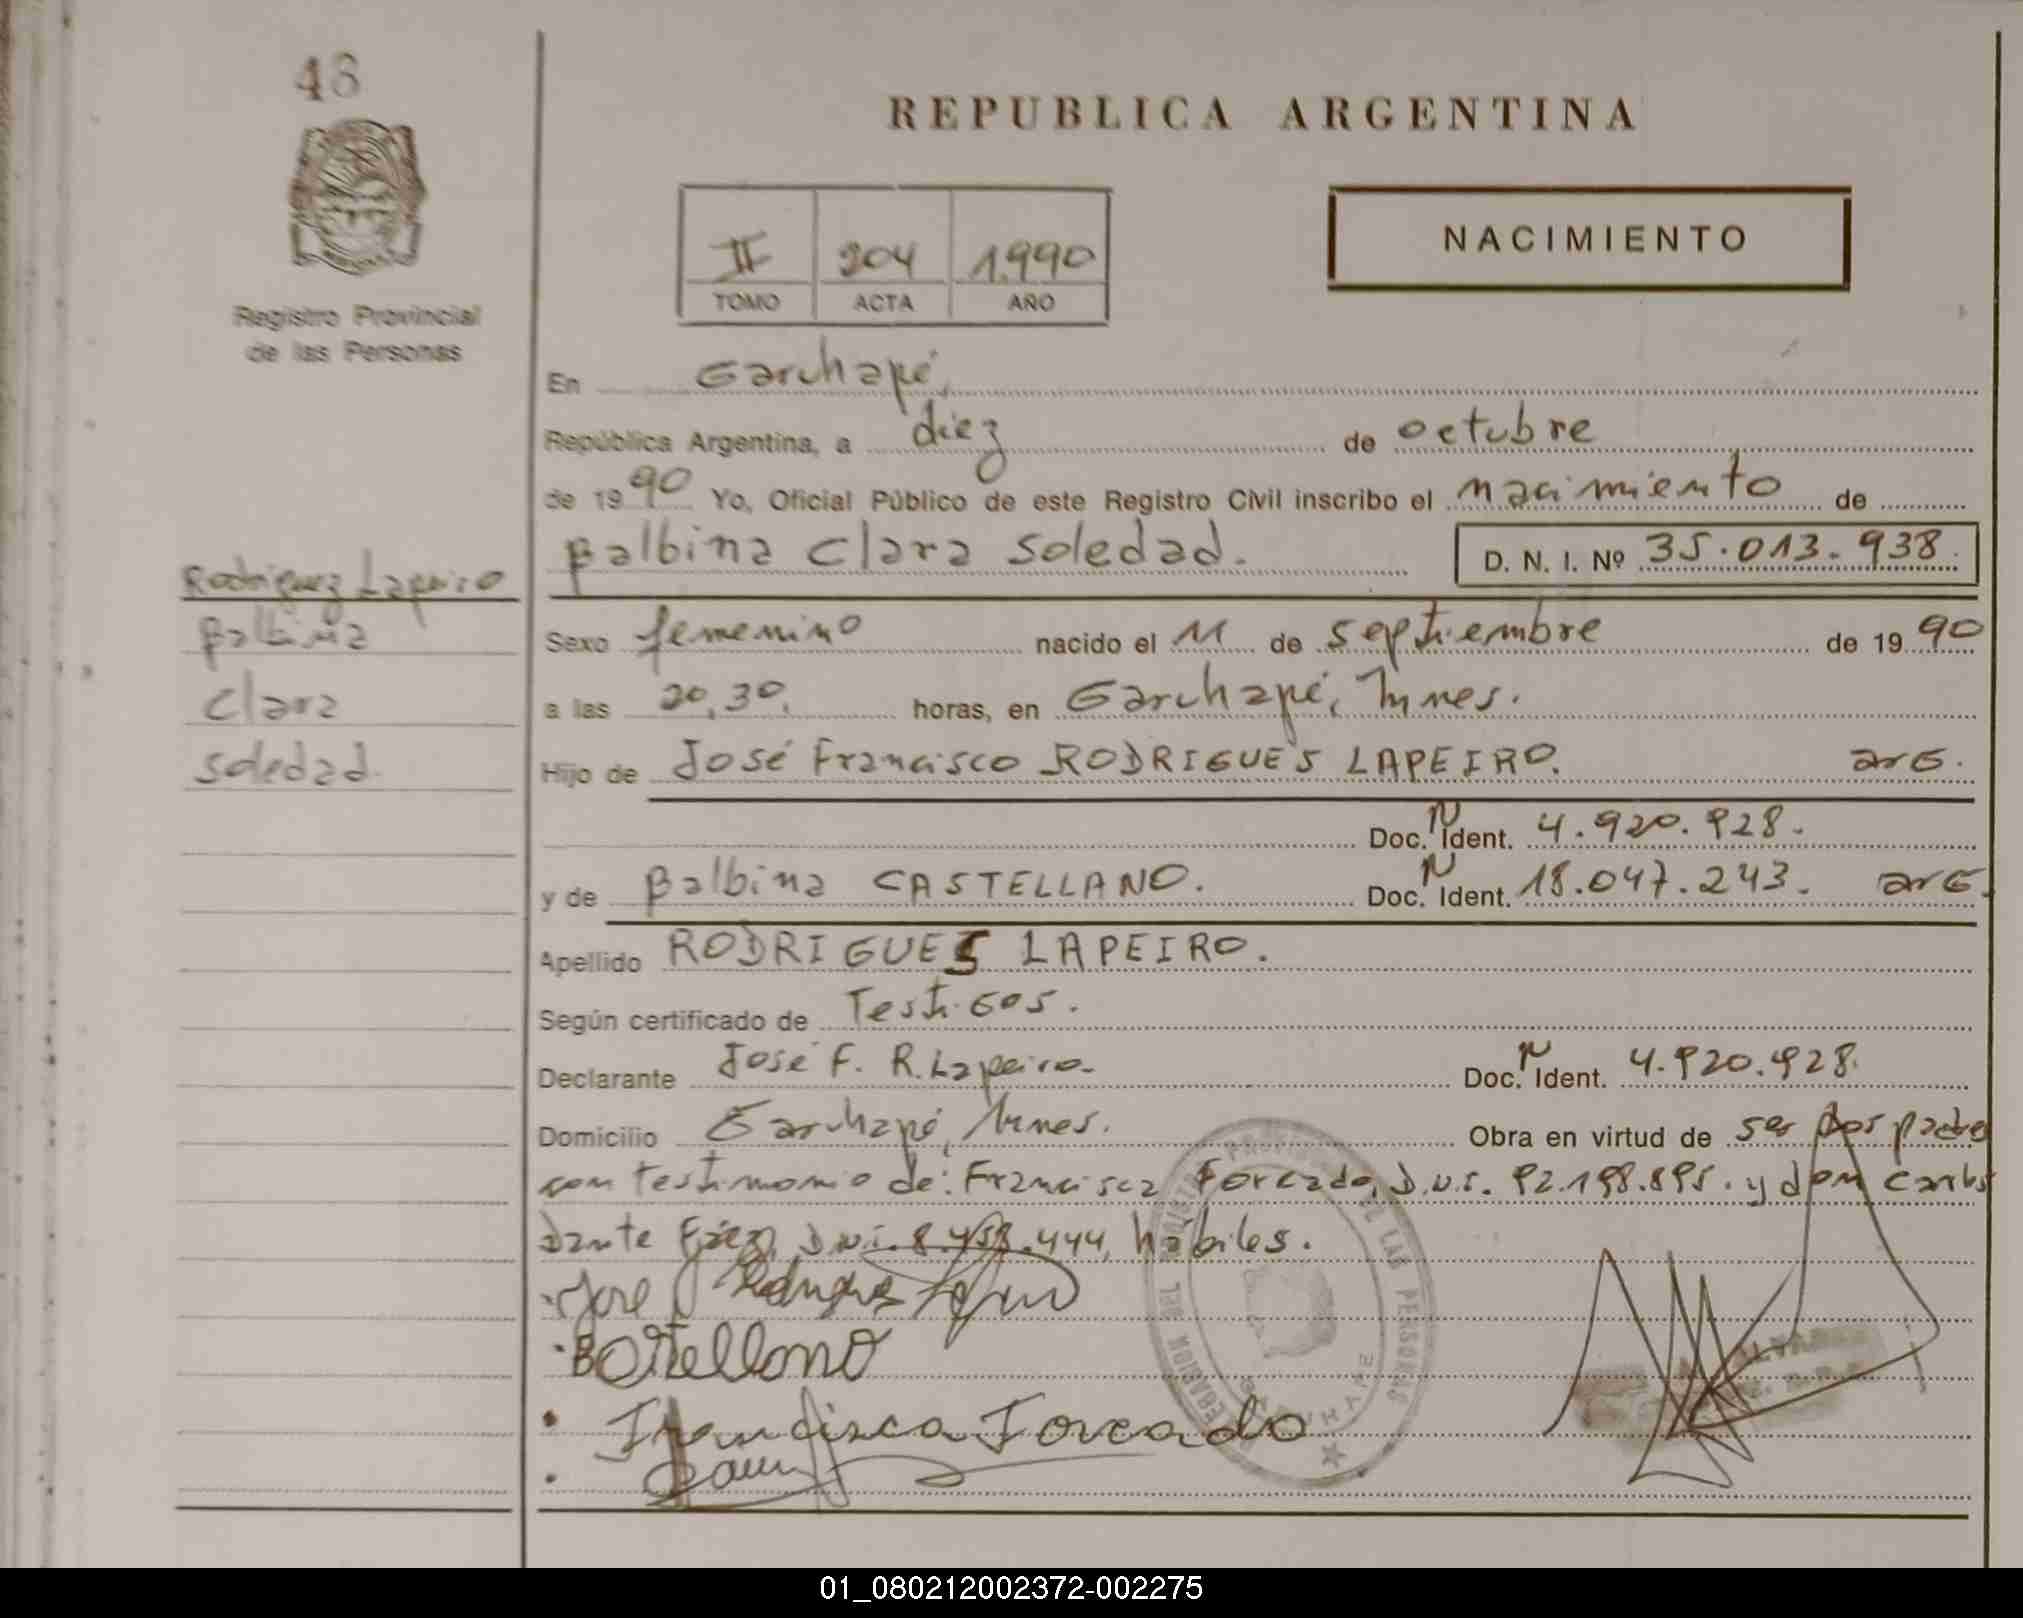 48
REPUBLICA ARGENTINA
NACIMIENTO
II 204 1.990
TOMO ACTA AÑO
Registro Provincial
de las Personas
En Garuhapé,
República Argentina, a diez de octubre
de 1990 Yo, Oficial Público de este Registro Civil inscribo el nacimiento de
Balbina Clara Soledad. D. N. I. Nº 35.013.938.
Rodriguez Lapeiro
Balbina
Clara
Soledad.
Sexo femenino nacido el 11 de septiembre de 1990
a las 20,30, horas, en Garuhapé, Mnes.
Hijo de José Francisco RODRIGUES LAPEIRO. arg.
Doc. N Ident. 4.920.928.
y de Balbina CASTELLANO. Doc. N Ident. 18.047.243. arg.
Apellido RODRIGUES LAPEIRO.
Según certificado de Testigos.
Declarante José F. R. Lapeiro. Doc. N Ident. 4.920.928.
Domicilio Garuhapé, Mnes. Obra en virtud de ser los padres
con testimonio de: Francisca Forcado, D.N.I. 92.198.895. y don Carlos
Dante D.N.I. 8. .444, hábiles.
José Rodrigues
Francisca Forcado
DELEGACION DEL REGISTRO PROVINCIAL DE LAS PERSONAS
GARUHAPE
01_080212002372-002275